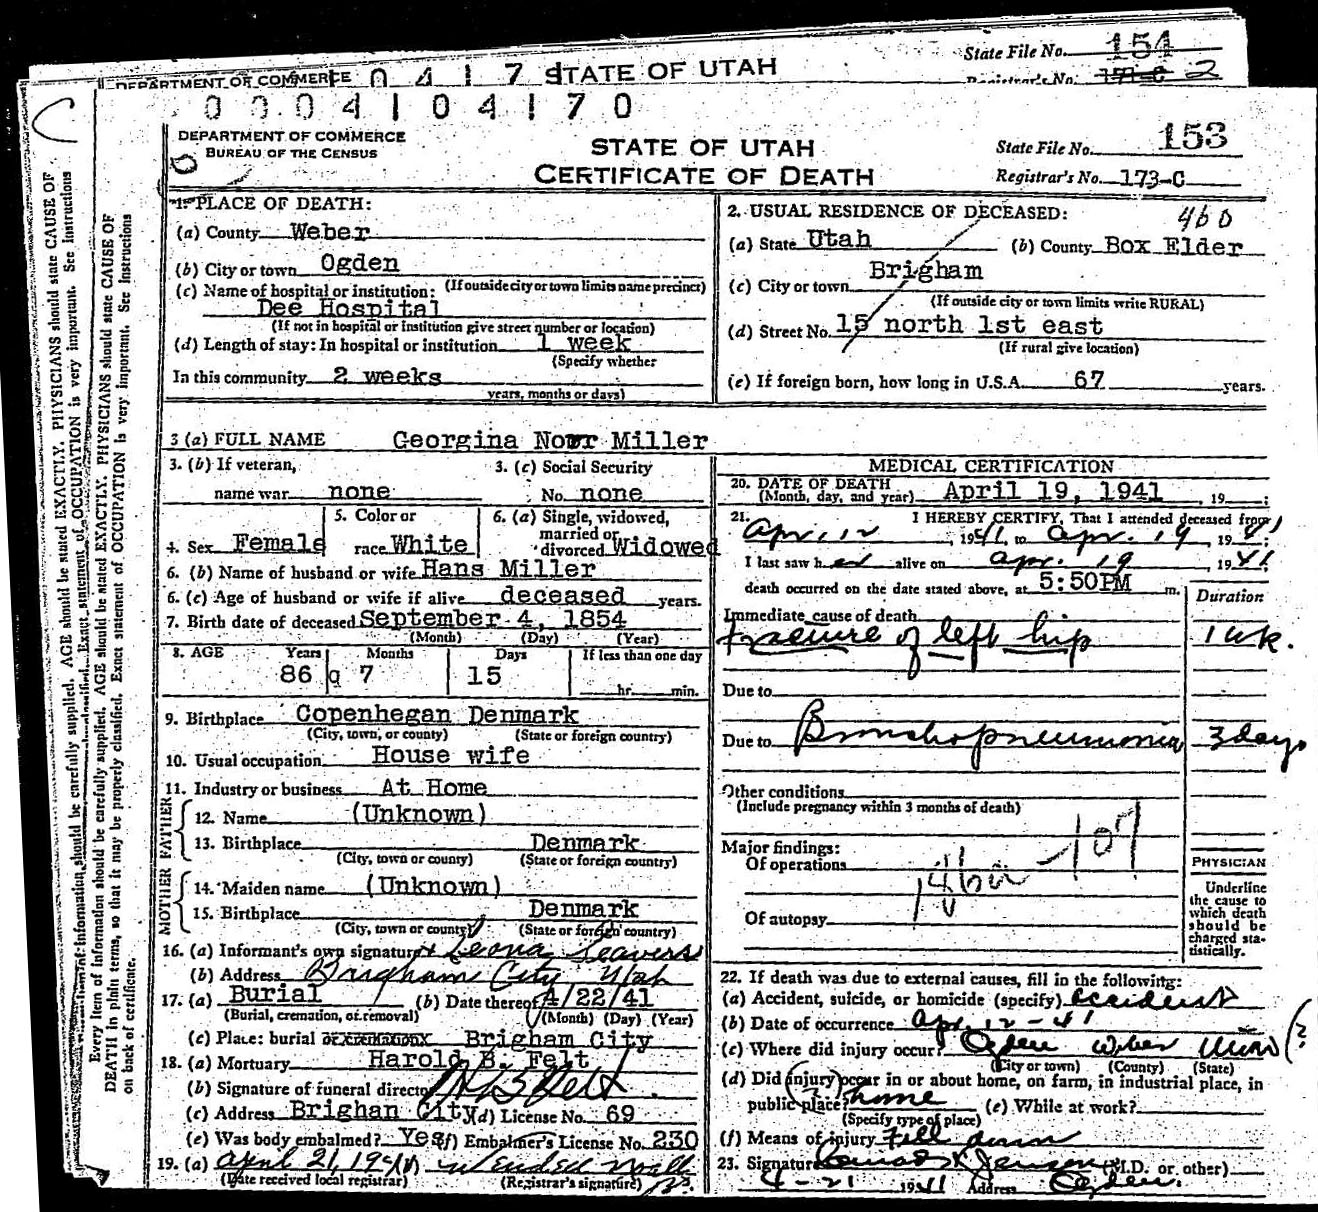 State File No. 154
DEPARTMENT OF COMMERCE 0 4 1 7 STATE OF UTAH
Registrar's No. 171-C 2
0 0 0 4 1 0 4 1 7 0
DEPARTMENT OF COMMERCE
BUREAU OF THE CENSUS
STATE OF UTAH
CERTIFICATE OF DEATH
State File No. 153
Registrar's No. 173-C
Every item of information should be carefully supplied. AGE should be stated EXACTLY. PHYSICIANS should state CAUSE OF
DEATH in plain terms, so that it may be properly classified. Exact statement of OCCUPATION is very important. See Instructions
on back of certificate.
1. PLACE OF DEATH:
(a) County Weber
(b) City or town Ogden
(If outside city or town limits name precinct)
(c) Name of hospital or institution:
Dee Hospital
(If not in hospital or institution give street number or location)
(d) Length of stay: In hospital or institution 1 week
(Specify whether
In this community 2 weeks
years, months or days)
2. USUAL RESIDENCE OF DECEASED: 460
(a) State Utah (b) County Box Elder
(c) City or town Brigham
(If outside city or town limits write RURAL)
(d) Street No. 15 north 1st east
(If rural give location)
(e) If foreign born, how long in U.S.A. 67 years.
3 (a) FULL NAME Georgina Norr Miller
3. (b) If veteran, name war none
3. (c) Social Security No. none
4. Sex Female
5. Color or race White
6. (a) Single, widowed, married or divorced Widowed
6. (b) Name of husband or wife Hans Miller
6. (c) Age of husband or wife if alive deceased years.
7. Birth date of deceased September 4, 1854
(Month) (Day) (Year)
8. AGE Years Months Days If less than one day
86 7 15 hr. min.
9. Birthplace Copenhegan Denmark
(City, town, or county) (State or foreign country)
10. Usual occupation House wife
11. Industry or business At Home
FATHER
12. Name (Unknown)
13. Birthplace Denmark
(City, town or county) (State or foreign country)
MOTHER
14. Maiden name (Unknown)
15. Birthplace Denmark
(City, town or county) (State or foreign country)
16. (a) Informant's own signature x Leona Seavers
(b) Address Brigham City Utah
17. (a) Burial (b) Date thereof 4/22/41
(Burial, cremation, or removal) (Month) (Day) (Year)
(c) Place: burial or cremation Brigham City
18. (a) Mortuary Harold B. Felt
(b) Signature of funeral director H B Felt
(c) Address Brighan City (d) License No. 69
(e) Was body embalmed? Yes (f) Embalmer's License No. 230
19. (a) April 21, 1941 Wendell
(Date received local registrar) (Registrar's signature)
MEDICAL CERTIFICATION
20. DATE OF DEATH
(Month, day, and year) April 19, 1941, 19
21. I HEREBY CERTIFY, That I attended deceased from
Apr. 12, 1941 to Apr. 19 1941;
I last saw her alive on Apr. 19 1941.
death occurred on the date stated above, at 5:50PM m.
Duration
Immediate cause of death
fracture of left hip 1 wk.
Due to
Due to Bronchopneumonia 3 days
Other conditions
(Include pregnancy within 3 months of death)
Major findings:
Of operations
107
Of autopsy
PHYSICIAN
Underline
the cause to
which death
should be
charged sta-
tistically.
22. If death was due to external causes, fill in the following:
(a) Accident, suicide, or homicide (specify) Accident
(b) Date of occurrence Apr. 12-41
(c) Where did injury occur? Ogden Weber Utah (?
(City or town) (County) (State)
(d) Did injury occur in or about home, on farm, in industrial place, in
public place? home (e) While at work?
(Specify type of place)
(f) Means of injury Fell down
23. Signature Conrad H Jensen (M.D. or other)
4-21 1941 Address Ogden.